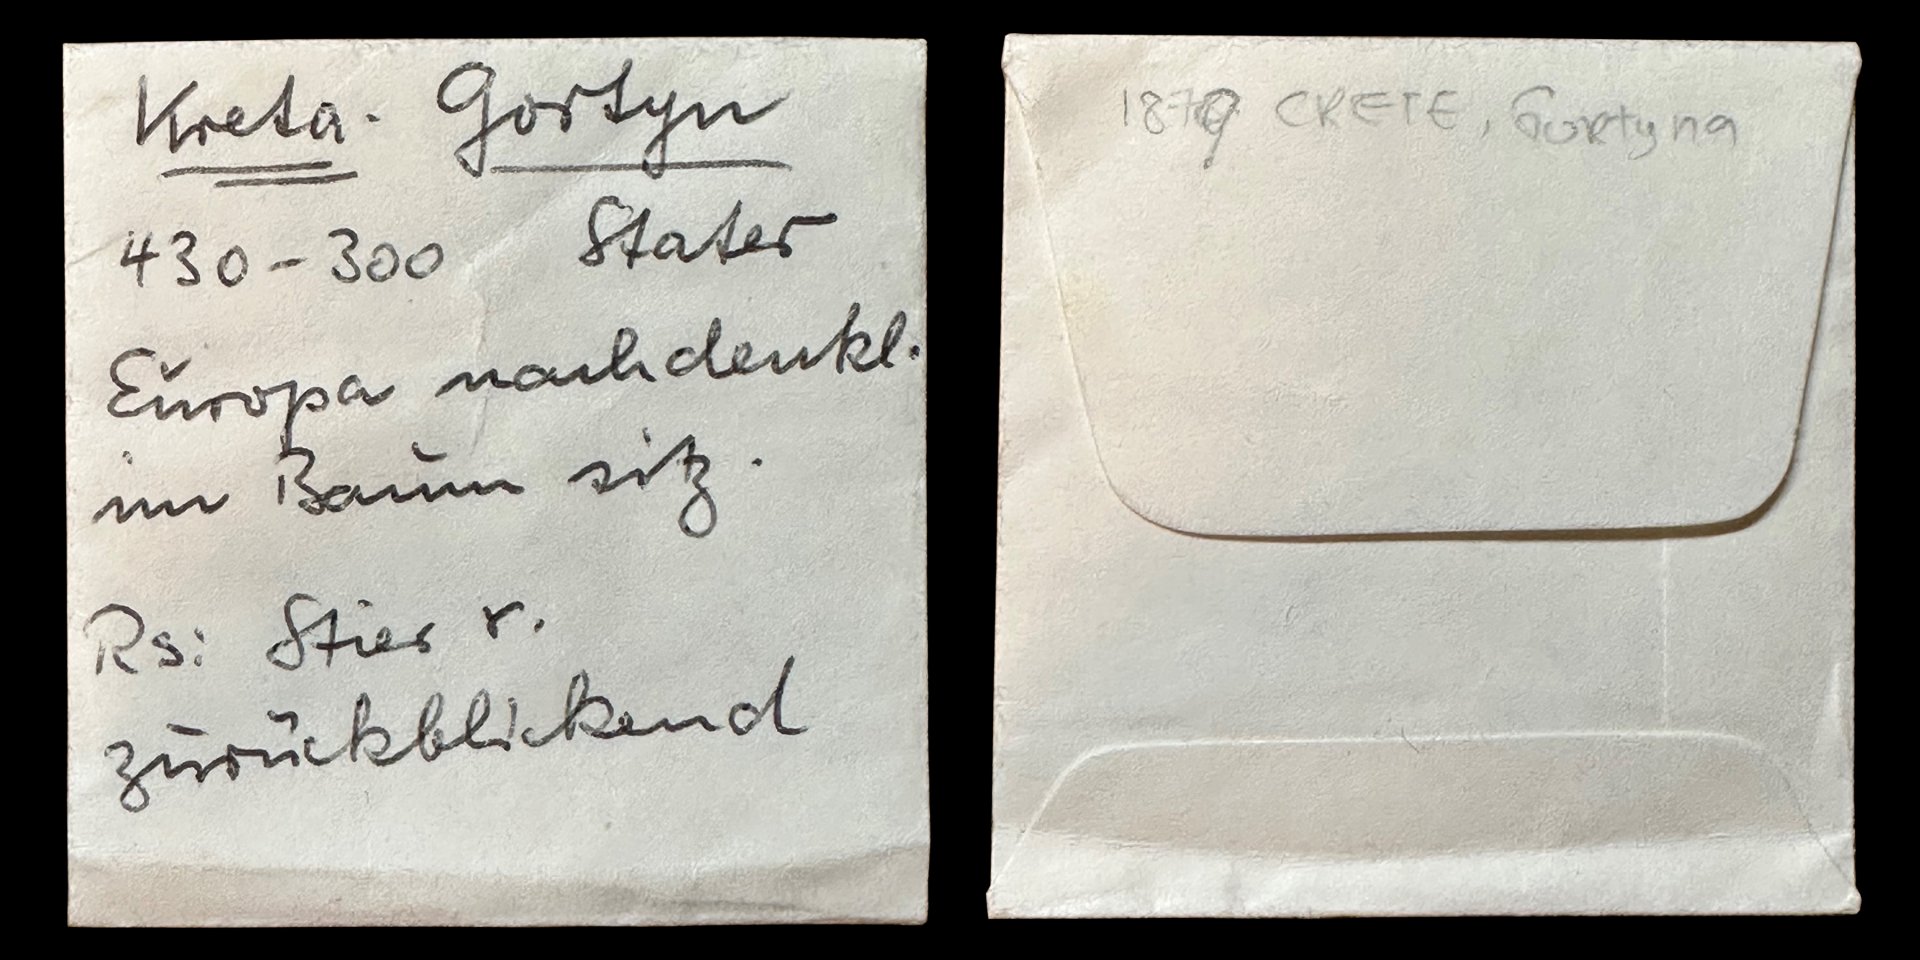 Kreta. Gortyn
430-300 Stater
Europa nachdenkl.
im Baum sitz.
Rs: Stier r.
zurückblickend
CRETE, Gortyna